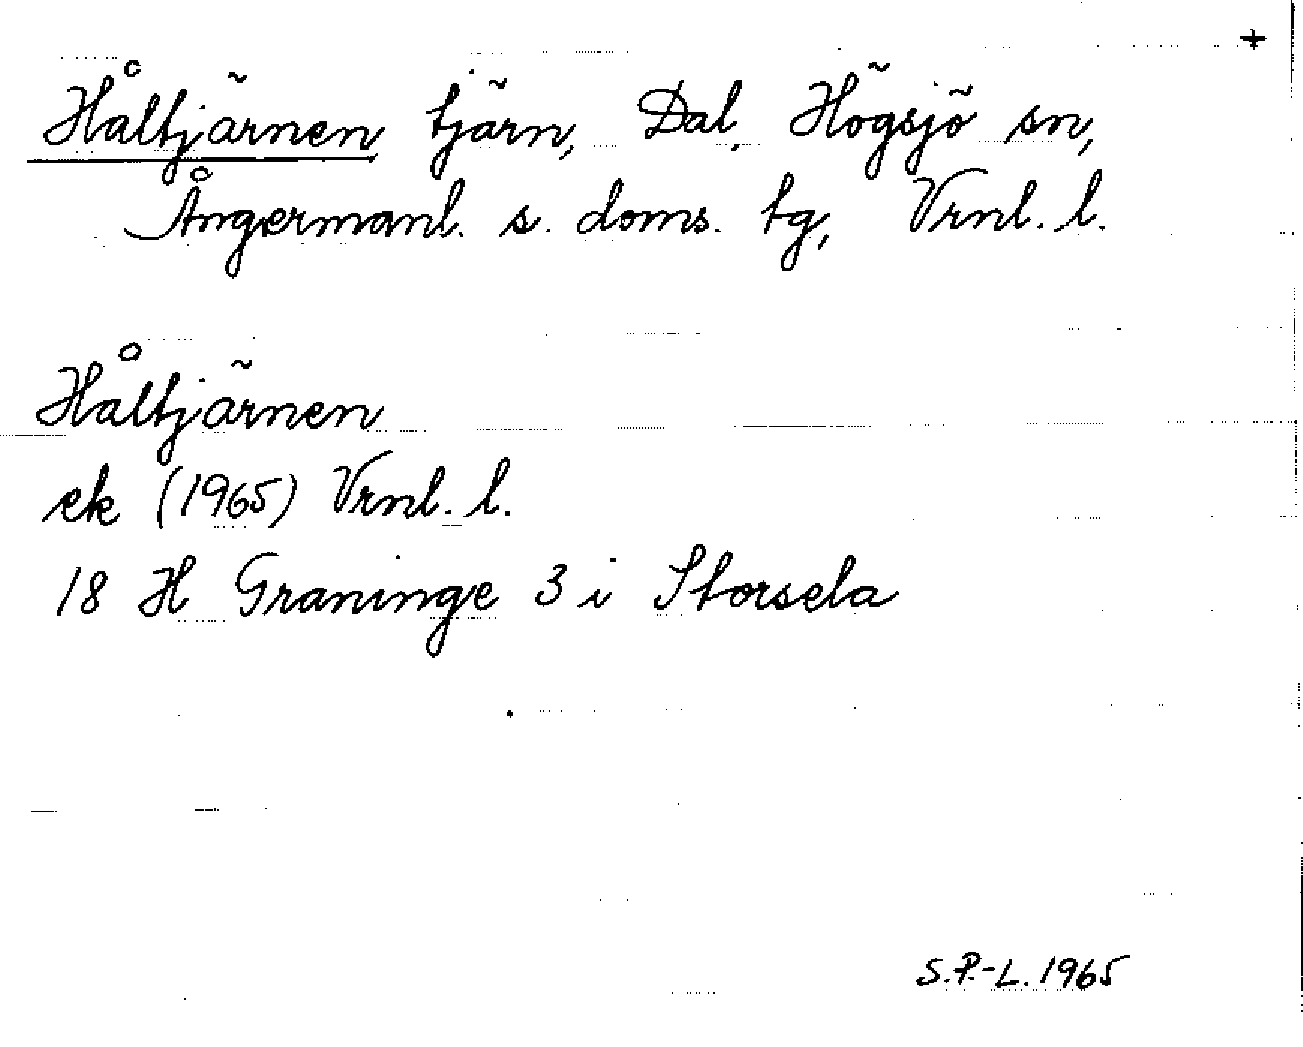 +
Håltjärnen tjärn, Dal, Högsjö sn,
Ångermanl. s. doms. tg, Vrnl. l.
Håltjärnen
ek (1965) Vrnl. l.
18 H Graninge 3 i Storsela
S.P.-L. 1965